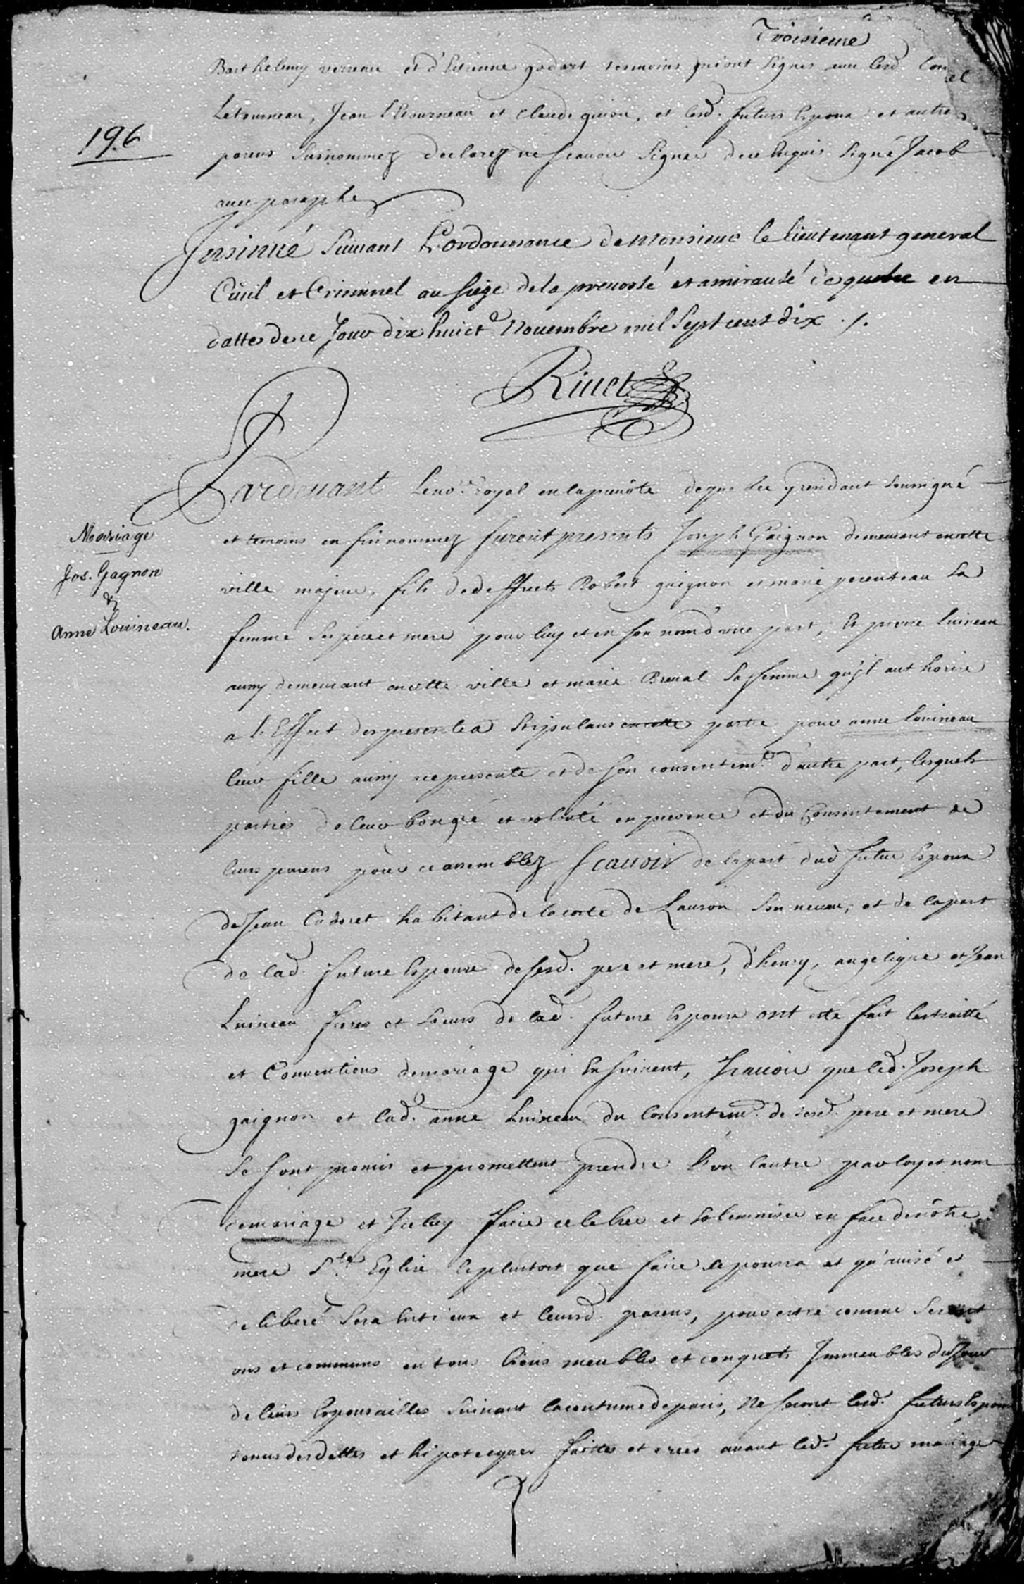 Troisieme
Barthelemy verreau et d'Estienne godart tesmoins qui ont signés avec lesd.
Letourneau, Jean Letourneau et Claude guion, et lesd. futurs Epoux et autres
196
parens susnommez declarez ne scavoir signer de ce Enquis signé Jacob
avec paraphe
Jnsinué Suivant L'ordonnance de Monsieur le lieutenant general
Ciuil et Criminel au siege de la preuosté et amirauté de quebec en
datte de ce Jour dix huict e Nouembre mil Sept cent dix ./.
Riuet
Pardeuant Le no.re royal en la preuosté de quebec resident soussigné
et temoins en fin nommez furent presents Joseph Gaignon demeurant en cette
Mariage
Jos. Gagnon
&
Anne Louineau.
ville majeur, fils de deffuncts Robert gaignon et marie parenteau sa
femme ses pere et mere pour luy et en son nom d'une part, Et pierre Luineau
aussy demeurant en cette ville et marie Breual sa femme qu'il authorise
a l'Effect des presentes stipulans en cette partie pour anne Louineau
leur fille aussy ce presente et de son consentem.t d'autre part, lesquels
parties de leur bon gré et volonté en presence et du Consentement de
leurs parens pour ce assemblez Scauoir de la part dud. futur Epoux
de Jean Cadoret habitant de la coste de Lauzon son neueu; et de la part
de lad. future Epouse de sesd. pere et mere, d'henry, angelique et Jean
Luineau freres et soeurs de lad. future Epouse ont esté fait les traitté
et Conuentions de mariage qui En suiuent, Scauoir que led. Joseph
gaignon et lad. anne Luineau du Consentem.t de sesd. pere et mere
se sont promis et promettent prendre L'un l'autre par loy et nom
de mariage et Jceluy faire celebrer et solemniser en face de nôtre
mere S.te Eglise le plustost que faire se pourra et qu'auisé et
deliberé sera entr'eux et leursd. parens, pour estre comme seront
uns et communs en tous biens meubles et conquets Jmmeubles du Jour
de leurs Epousailles suiuant la coutume de paris, Ne seront lesd. futurs Epoux
tenus des dettes et hipotecques faittes et crées auant led. futur mariage